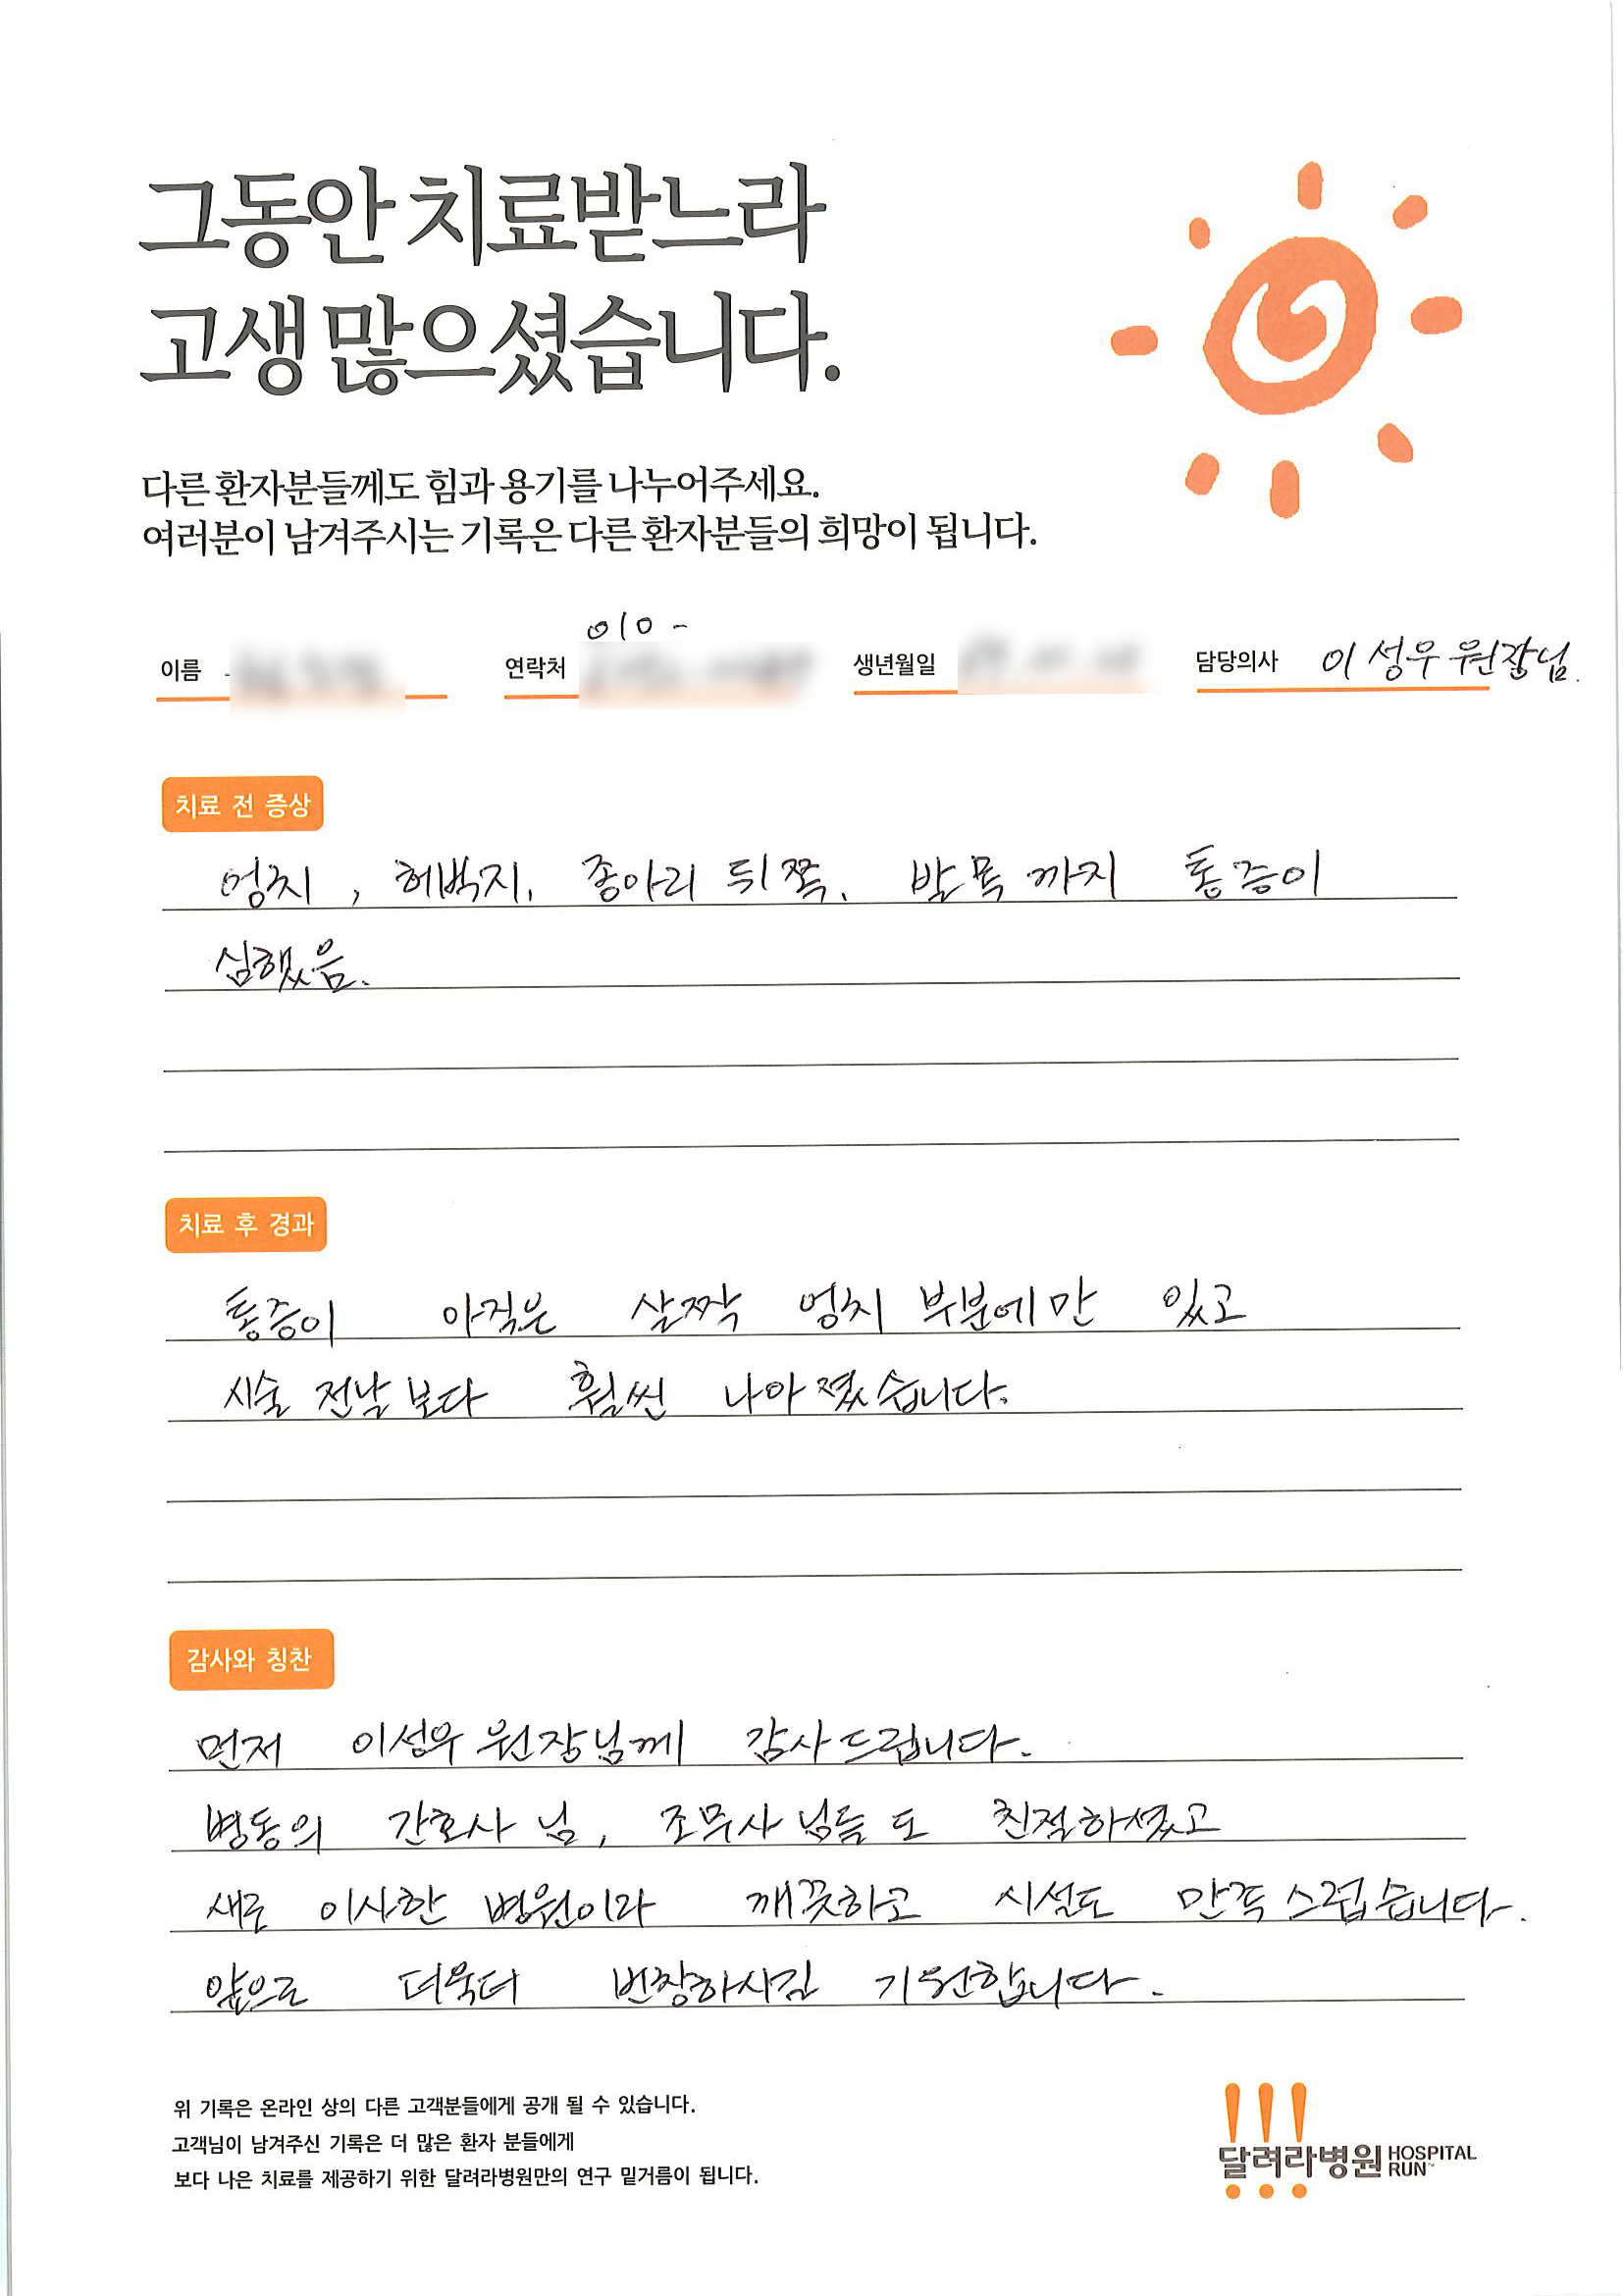 그동안 치료받느라
고생 많으셨습니다.
다른 환자분들께도 힘과 용기를 나누어주세요.
여러분이 남겨주시는 기록은 다른 환자분들의 희망이 됩니다.
이름 연락처 010- 생년월일 담당의사 이성우 원장님.
치료 전 증상
엉치, 허벅지, 종아리 뒤쪽, 발목까지 통증이
심했음.
치료 후 경과
통증이 아직은 살짝 엉치 부분에만 있고
시술 전날보다 훨씬 나아졌습니다.
감사와 칭찬
먼저 이성우 원장님께 감사드립니다.
병동의 간호사님, 조무사님들도 친절하셨고
새로 이사한 병원이라 깨끗하고 시설도 만족스럽습니다.
앞으로 더욱더 번창하시길 기원합니다.
위 기록은 온라인 상의 다른 고객분들에게 공개 될 수 있습니다.
고객님이 남겨주신 기록은 더 많은 환자 분들에게
보다 나은 치료를 제공하기 위한 달려라병원만의 연구 밑거름이 됩니다.
달려라병원 HOSPITAL RUN